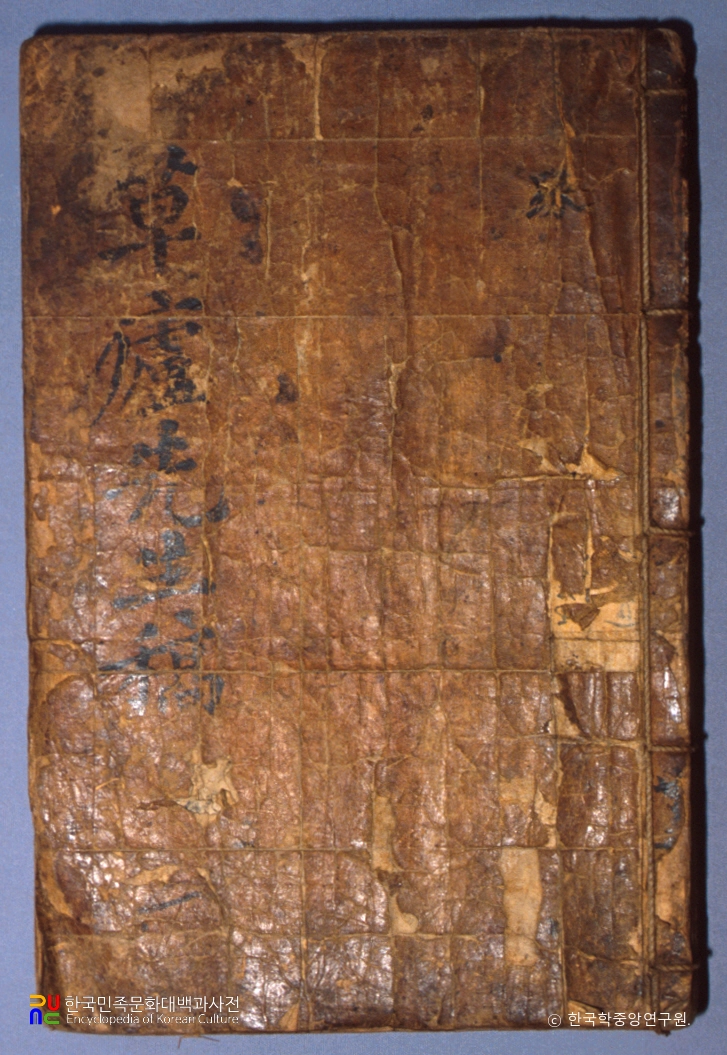 草廬先生稿
한국민족문화대백과사전
Encyclopedia of Korean Culture
ⓒ 한국학중앙연구원.